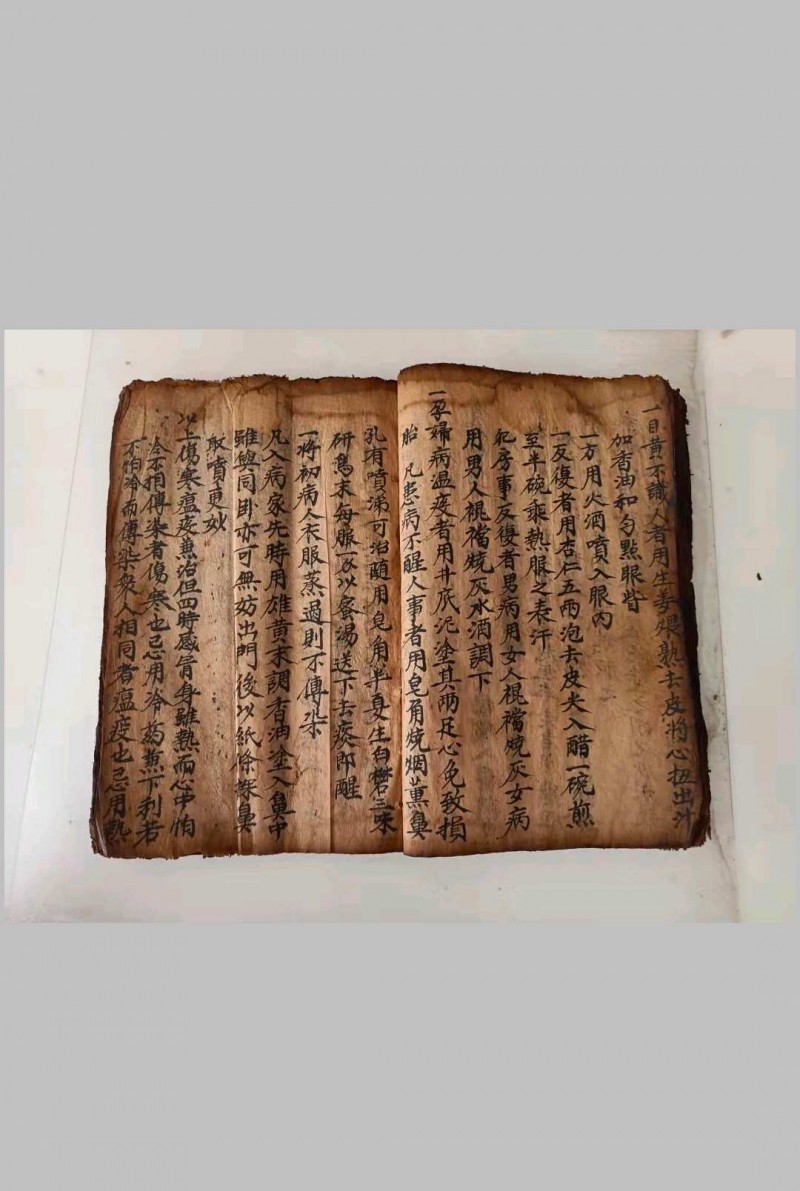 一目黄不識人者用生姜煨熟去皮將心扭出汁
加香油和勻點眼眥
一方用火酒噴入眼內
一反復者用杏仁五兩泡去皮尖入醋一碗煎
至半碗乘熱服之表汗
犯房事反復者男病用女人裩襠燒灰女病
用男人裩襠燒灰水酒調下
一孕婦病温疫者用井底泥塗其兩足心免致損
胎 凡患病不醒人事者用皂角燒烟薰鼻
孔有噴涕可治隨用皂角半夏生白礬三味
研為末每服一以姜湯送下去痰即醒
一將初病人衣服蒸過則不傳染
凡入病家先時用雄黄末調香油塗入鼻中
雖與同卧亦可無妨出門後以紙條探鼻
取噴更妙
以上傷寒瘟疫兼治但四時感冐身雖熱而心中怕
冷不相傳染者傷寒也忌用冷葯兼下利若
不怕冷而傳染衆人相同者瘟疫也忌用熱